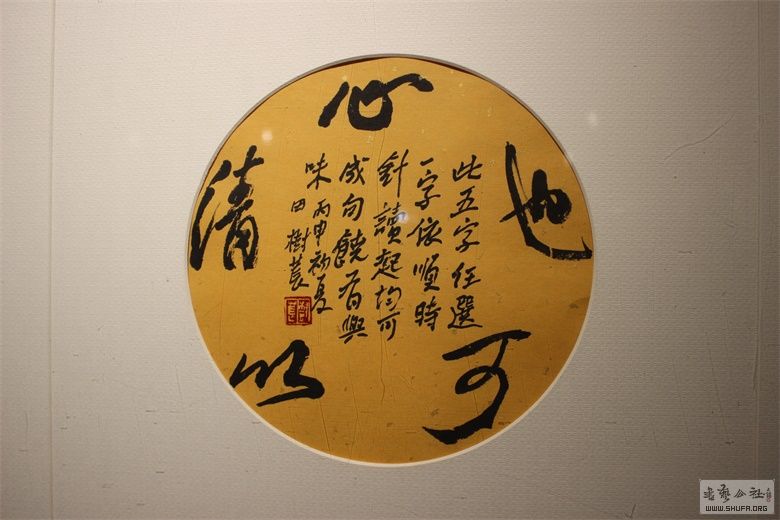 心
也
可
以
清
此五字任選
一字依順時
針讀起均可
成句饒有興
味 丙申初夏
田樹萇
書藝公社
WWW.SHUFA.ORG